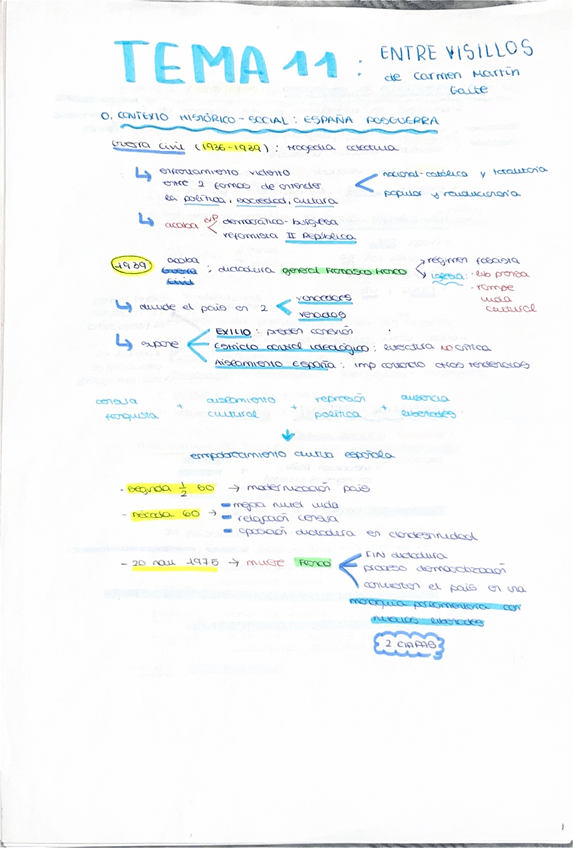 TEMA 11: ENTRE VISILLOS
de Carmen Martín
Gaite
0. CONTEXTO HISTÓRICO-SOCIAL: ESPAÑA POSGUERRA
Guerra Civil (1936-1939): tragedia colectiva
enfrentamiento violento
entre 2 formas de entender
la política, sociedad, cultura
nacional-católica y totalitaria
popular y revolucionaria
acaba exp democrático-burguesa
reformista II República
1939 acaba
Guerra
Civil
: dictadura general Francisco Franco
régimen fascista
iglesia: · lib prensa
· rompe
vida
cultural
divide el país en 2
vencedores
vencidos
supone
EXILIO: pierden conexión
Estricto control ideológico: literatura no crítica
Aislamiento España: imp contacto otras tendencias
censura
franquista
+ aislamiento
cultural
+ represión
política
+ ausencia
libertades
empobrecimiento cultura española
- Segunda 1/2 50 → modernización país
- Década 60 →
mejora nivel vida
relajación censura
oposición dictadura en clandestinidad
- 20 nov 1975 → muere Franco
FIN dictadura
proceso democratización
convierten el país en una
monarquía parlamentaria con
nuevas libertades